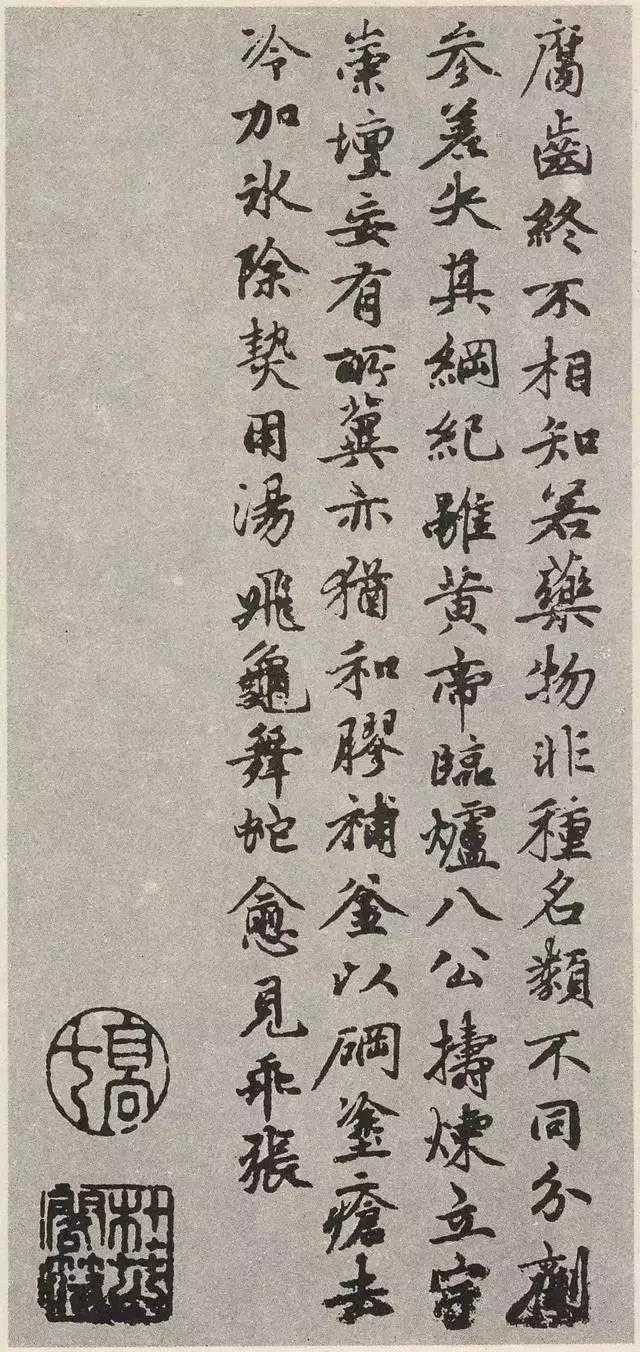 腐齒終不相知若藥物非種名類不同分劑
參差失其綱紀雖黃帝臨爐八公擣煉立宇
崇壇妄有所冀亦猶和膠補釜以碙塗瘡去
冷加氷除熱用湯飛龜舞蛇愈見乖張